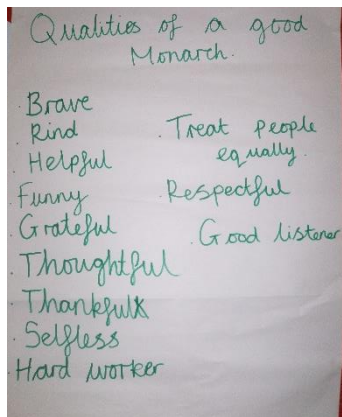 Qualities of a good
Monarch.
· Brave
· Kind
· Helpful
· Funny
· Grateful
· Thoughtful
· Thankful
· Selfless
· Hard worker
· Treat people
equally.
· Respectful
· Good listener